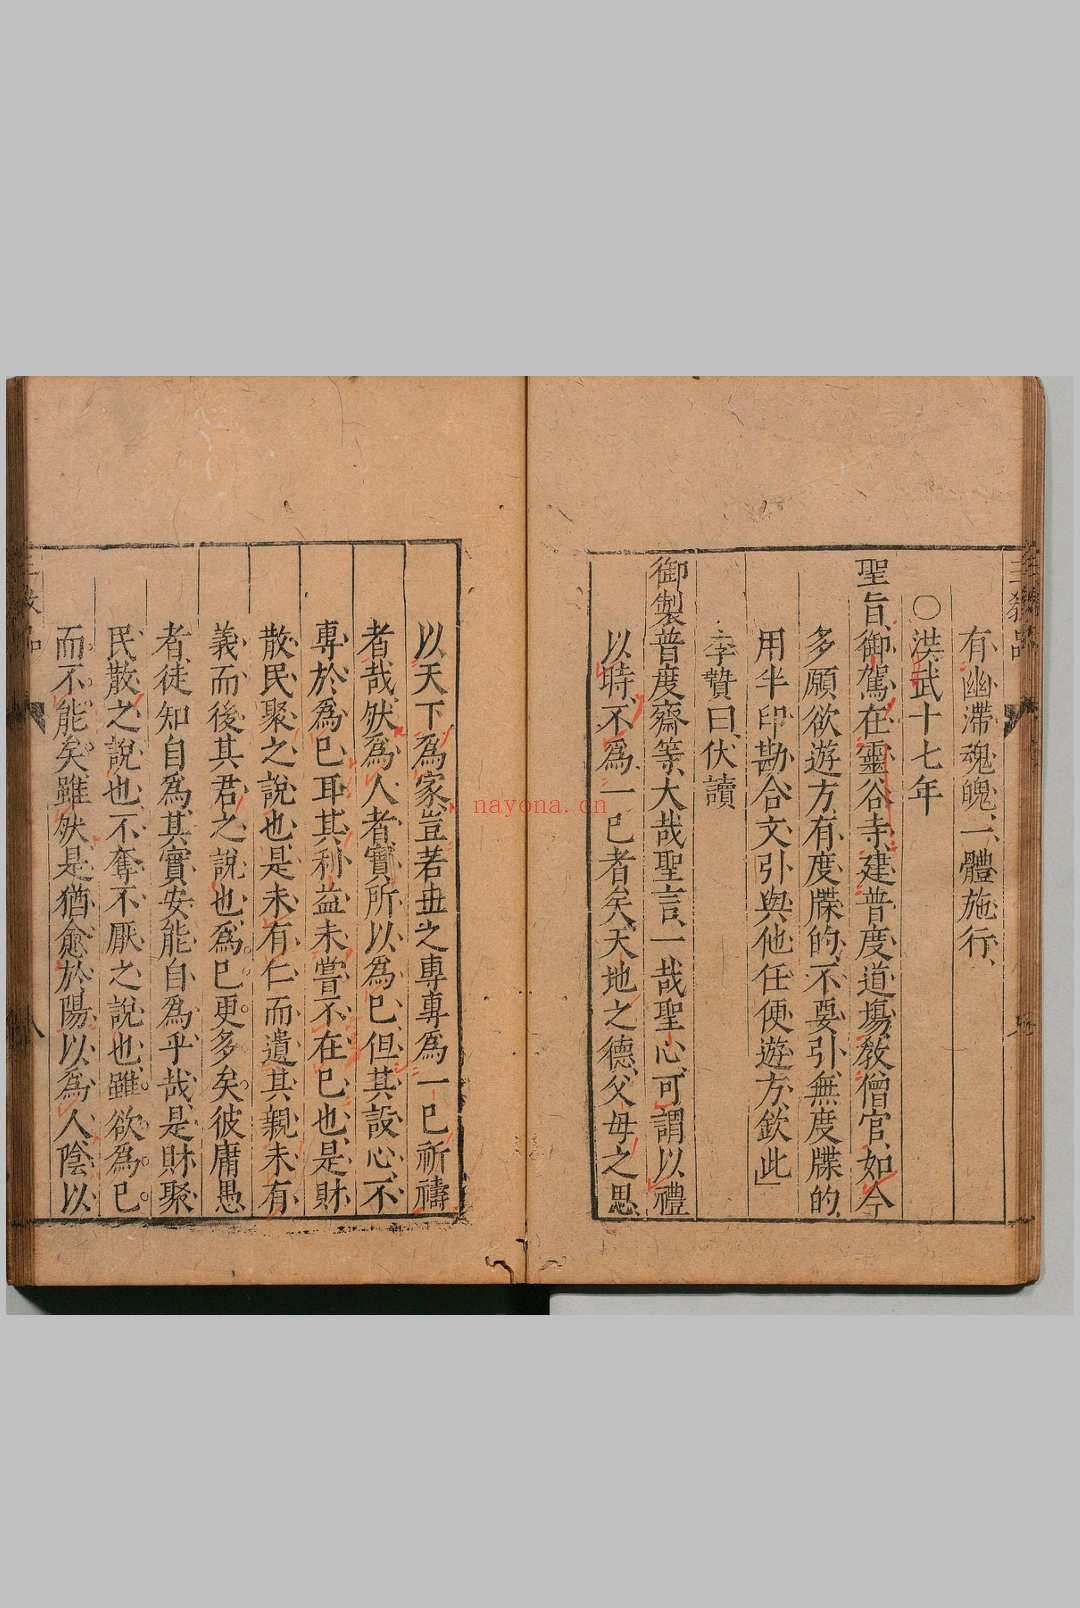 三教品
有幽滯魂魄、一體施行、
○洪武十七年
聖旨、御駕在靈谷寺、建普度道場、教僧官、如今
多願欲遊方、有度牒的、不要引、無度牒的、
用半印勘合文引與他任便遊方、欽此」
李贄曰、伏讀
御製普度齋等、大哉聖言、一哉聖心、可謂以禮
以時、不爲一已者矣、天地之德、父母之思
以天下爲家、豈若世之專專爲一已祈禱
者哉、然爲人者實所以爲已、但其設心不
專於爲已耳、其利益未嘗不在已也、是財
散民聚之說也、是未有仁而遺其親、未有
義而後其君之說也、爲已更多矣、彼庸愚
者、徒知自爲、其實安能自爲乎哉、是財聚
民散之說也、不奪不厭之說也、雖欲爲已
而不能矣、雖然、是猶愈於陽以爲人、陰以
八
nayona.cn